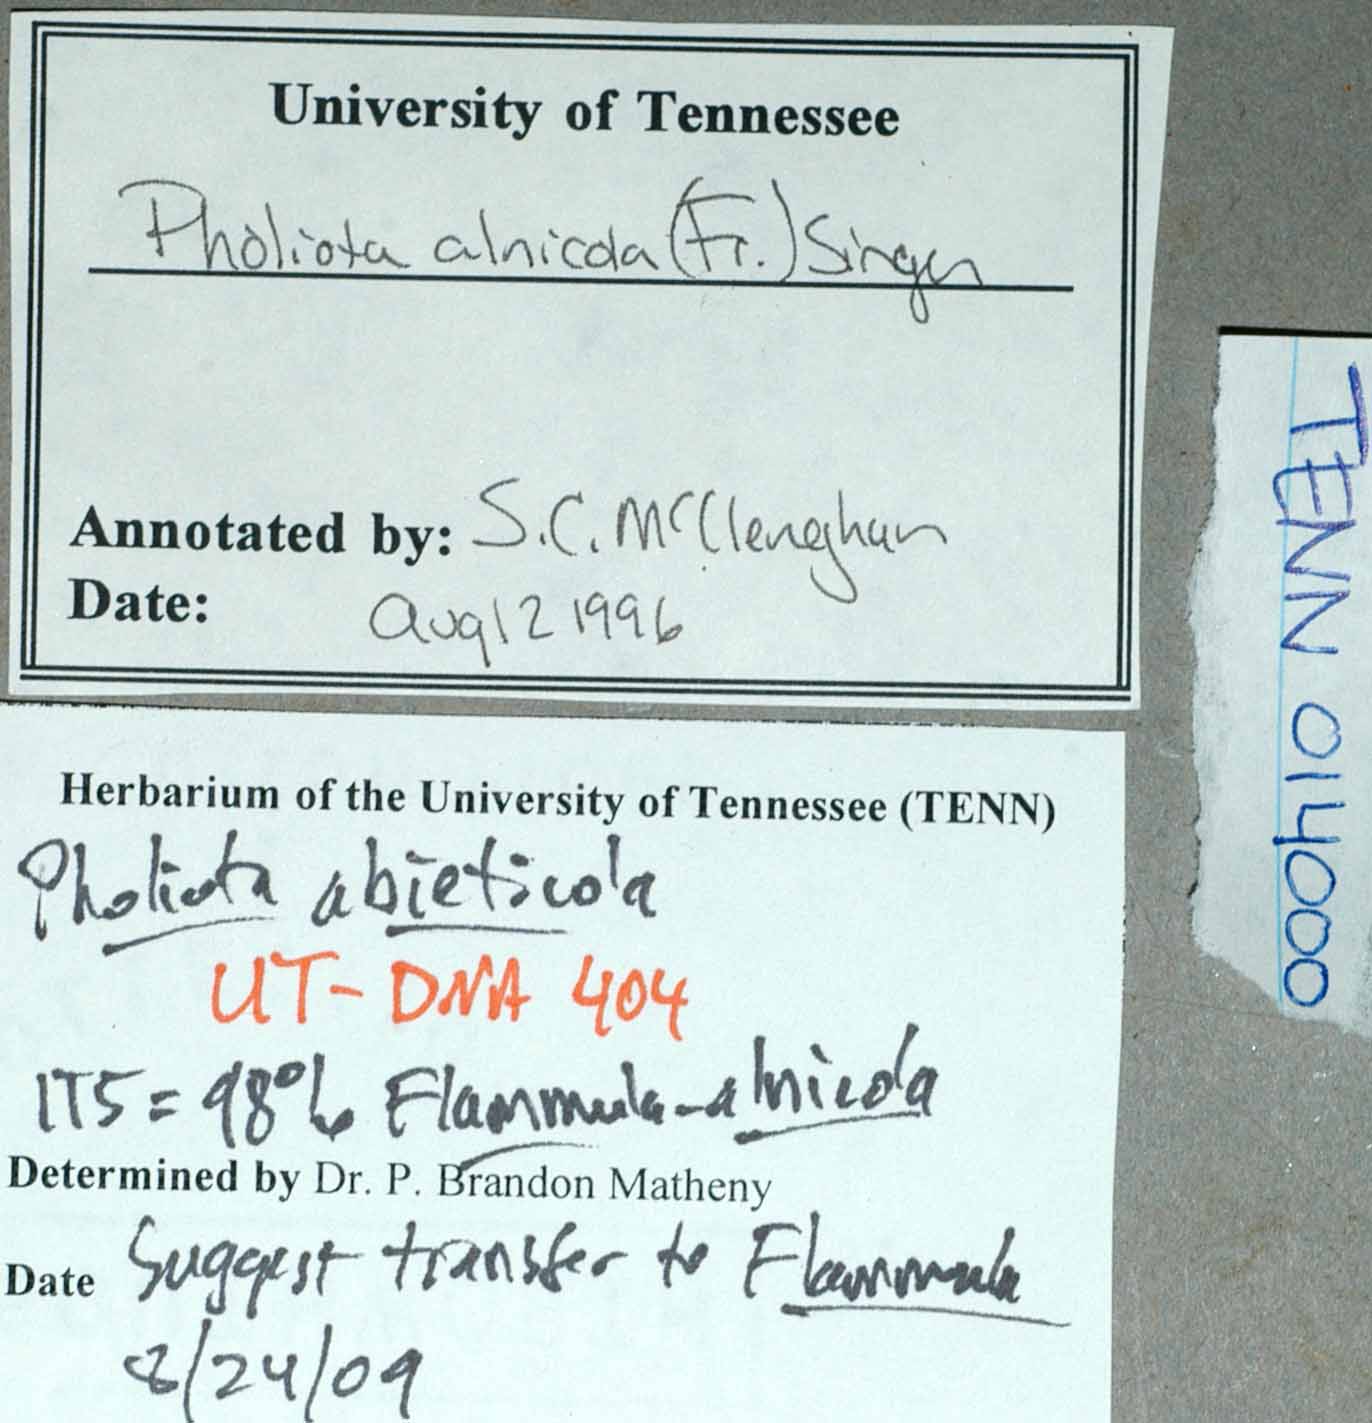 University of Tennessee
Pholiota alnicola (Fr.) Singer
Annotated by: S.C. McClenaghan
Date: Aug 12 1996
TENN 014000
Herbarium of the University of Tennessee (TENN)
Pholiota abieticola
UT-DNA 404
ITS = 98% Flammula alnicola
Determined by Dr. P. Brandon Matheny
Date Suggest transfer to Flammula
8/24/09